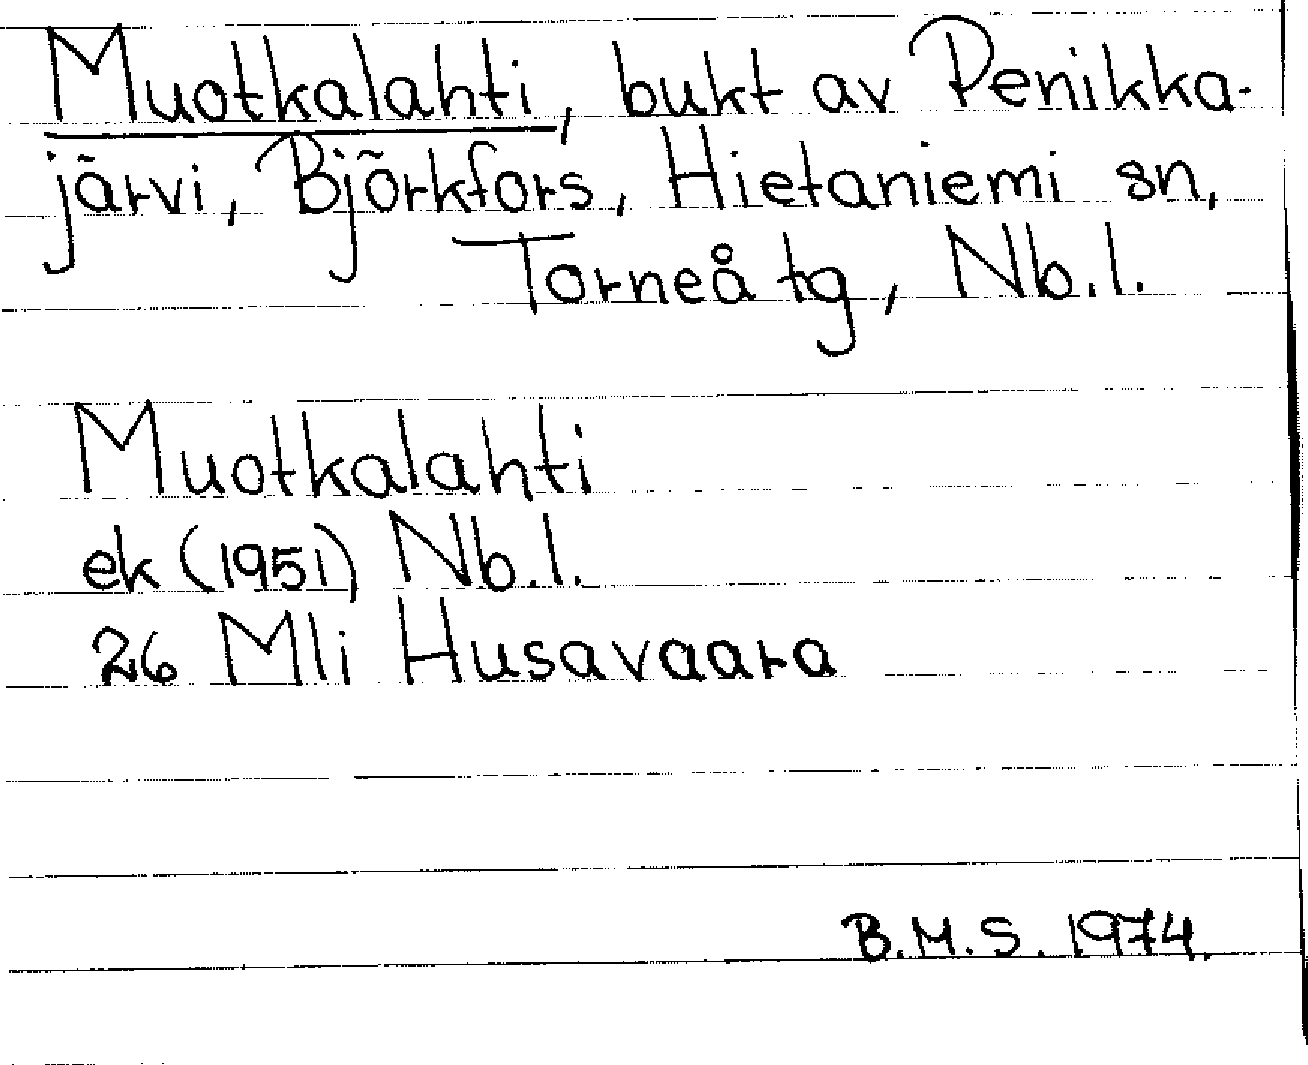 Muotkalahti, bukt av Penikka-
järvi, Björkfors, Hietaniemi sn,
Torneå tg, Nb.l.
Muotkalahti
ek (1951) Nb.l.
26 Mli Husavaara
B.M.S. 1974.